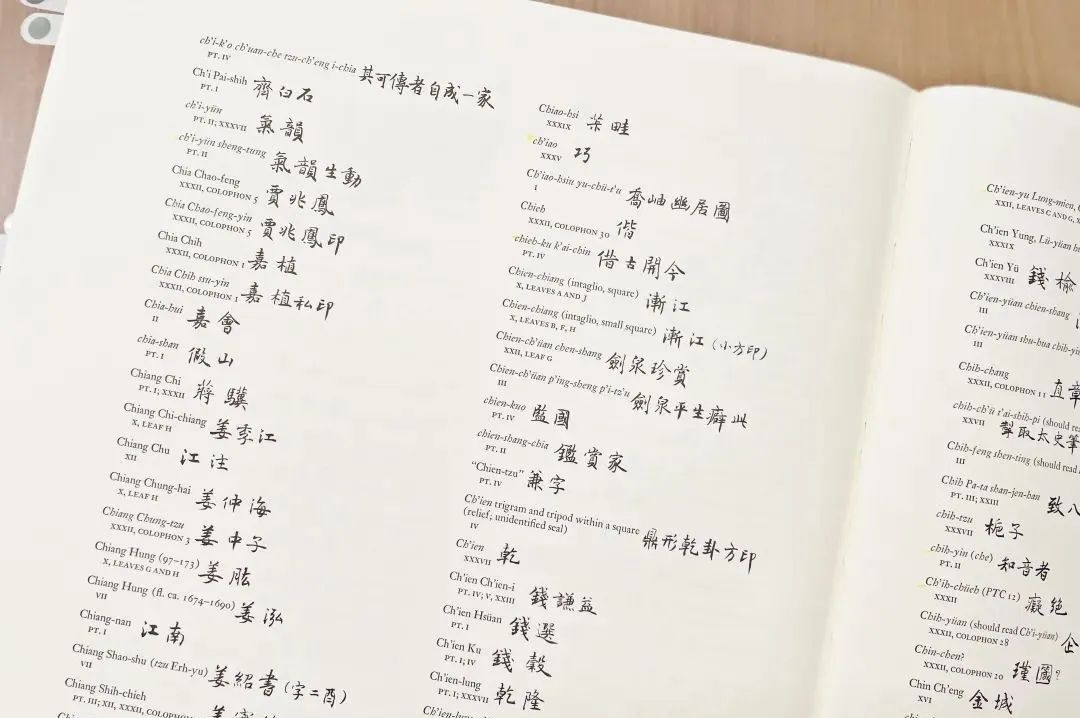 ch'i-k'o ch'uan-che tzu-ch'eng i-chia 其可傳者自成一家
PT. IV
Ch'i Pai-shih 齊白石
PT. I
ch'i-yün 氣韻
PT. II; XXXVII
ch'i-yün sheng-tung 氣韻生動
PT. II
Chia Chao-feng 賈兆鳳
XXXII, COLOPHON 5
Chia Chao-feng-yin 賈兆鳳印
XXXII, COLOPHON 5
Chia Chih 嘉植
XXXII, COLOPHON 1
Chia Chih ssu-yin 嘉植私印
XXXII, COLOPHON 1
Chia-hui 嘉會
II
chia-shan 假山
PT. I
Chiang Chi 蔣驥
PT. I; XXXII
Chiang Chi-chiang 姜季江
X, LEAF H
Chiang Chu 江注
XII
Chiang Chung-hai 姜仲海
X, LEAF H
Chiang Chung-tzu 姜中子
XXXII, COLOPHON 3
Chiang Hung (97–173) 姜肱
X, LEAVES G AND H
Chiang Hung (fl. ca. 1674–1690) 姜泓
VII
Chiang-nan 江南
PT. I
Chiang Shao-shu (tzu Erh-yu) 姜紹書 (字二酉)
VII
Chiang Shih-chieh
PT. III; XII, XXXII, COLOPHON
Chiao-hsi 茮畦
XXXIX
ch'iao 巧
XXXV
Ch'iao-hsiu yu-chü-t'u 喬岫幽居圖
I
Chieh 偕
XXXII, COLOPHON 30
chieh-ku k'ai-chin 借古開今
PT. IV
Chien-chiang (intaglio, square) 漸江
X, LEAVES A AND J
Chien-chiang (intaglio, small square) 漸江 (小方印)
X, LEAVES B, F, H
Chien-ch'üan chen-shang 劍泉珍賞
XXII, LEAF G
Chien-ch'üan p'ing-sheng p'i-tz'u 劍泉平生癖此
III
chien-kuo 監國
PT. IV
chien-shang-chia 鑑賞家
PT. II
"Chien-tzu" 兼字
PT. IV
Ch'ien trigram and tripod within a square 鼎形乾卦方印
(relief; unidentified seal)
IV
Ch'ien 乾
XXXVII
Ch'ien Ch'ien-i 錢謙益
PT. IV; V, XXIII
Ch'ien Hsüan 錢選
PT. I
Ch'ien Ku 錢穀
PT. I; IV
Ch'ien-lung 乾隆
PT. I; XXXVII
Ch'ien-yu Lung-mien,
XXII, LEAVES C AND G, X
Ch'ien Yung, Lü-yüan
XXXIX
Ch'ien Yü 錢榆
XXXVIII
Ch'ien-yüan chien-shang
III
Ch'ien-yüan shu-hua chih-yin
III
Chih-chang 直章
XXXII, COLOPHON 11
chih-ch'ü t'ai-shih-pi (should read
XXVII 掣取太史筆
Chih-feng shen-ting (should read
III
Chih Pa-ta shan-jen-han 致八
PT. III; XXIII
chih-tzu 栀子
XXXVII
chih-yin (che) 知音者
PT. II
Ch'ih-chüeh (PTC 12) 癡絕
XXXII
Chih-yüan (should read Ch'i-yüan) 企
XXXII, COLOPHON 28
Chin-chen? 瑾圖?
XXXII, COLOPHON 20
Chin Ch'eng 金城
XVI